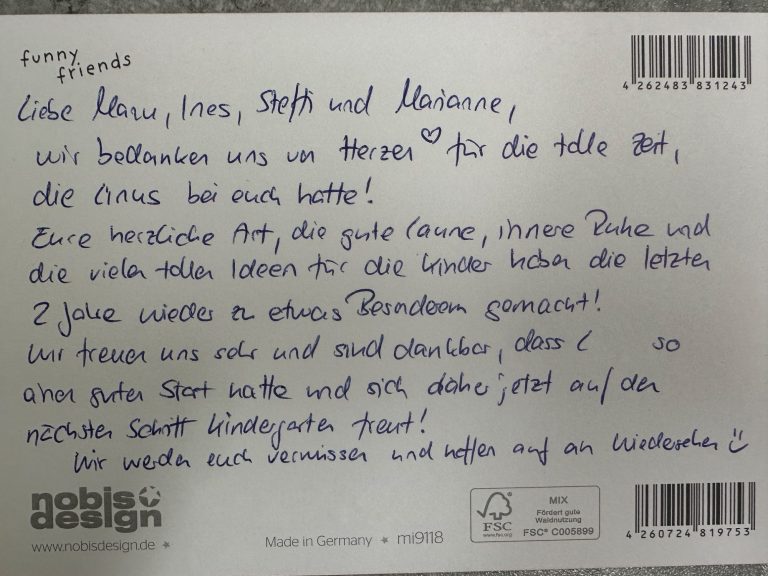 funny
friends
4 262483 831243
Liebe Manu, Ines, Steffi und Marianne,
wir bedanken uns von Herzen ♡ für die tolle Zeit,
die Linus bei euch hatte!
Eure herzliche Art, die gute Laune, innere Ruhe und
die vielen tollen Ideen für die Kinder haben die letzten
2 Jahre wieder zu etwas Besonderem gemacht!
Wir freuen uns sehr und sind dankbar, dass L so
einen guten Start hatte und sich daher jetzt auf den
nächsten Schritt Kindergarten freut!
Wir werden euch vermissen und hoffen auf ein Wiedersehen
nobis
design
www.nobisdesign.de
Made in Germany ★ mi9118
FSC
www.fsc.org
MIX
Fördert gute
Waldnutzung
FSC® C005899
4 260724 819753